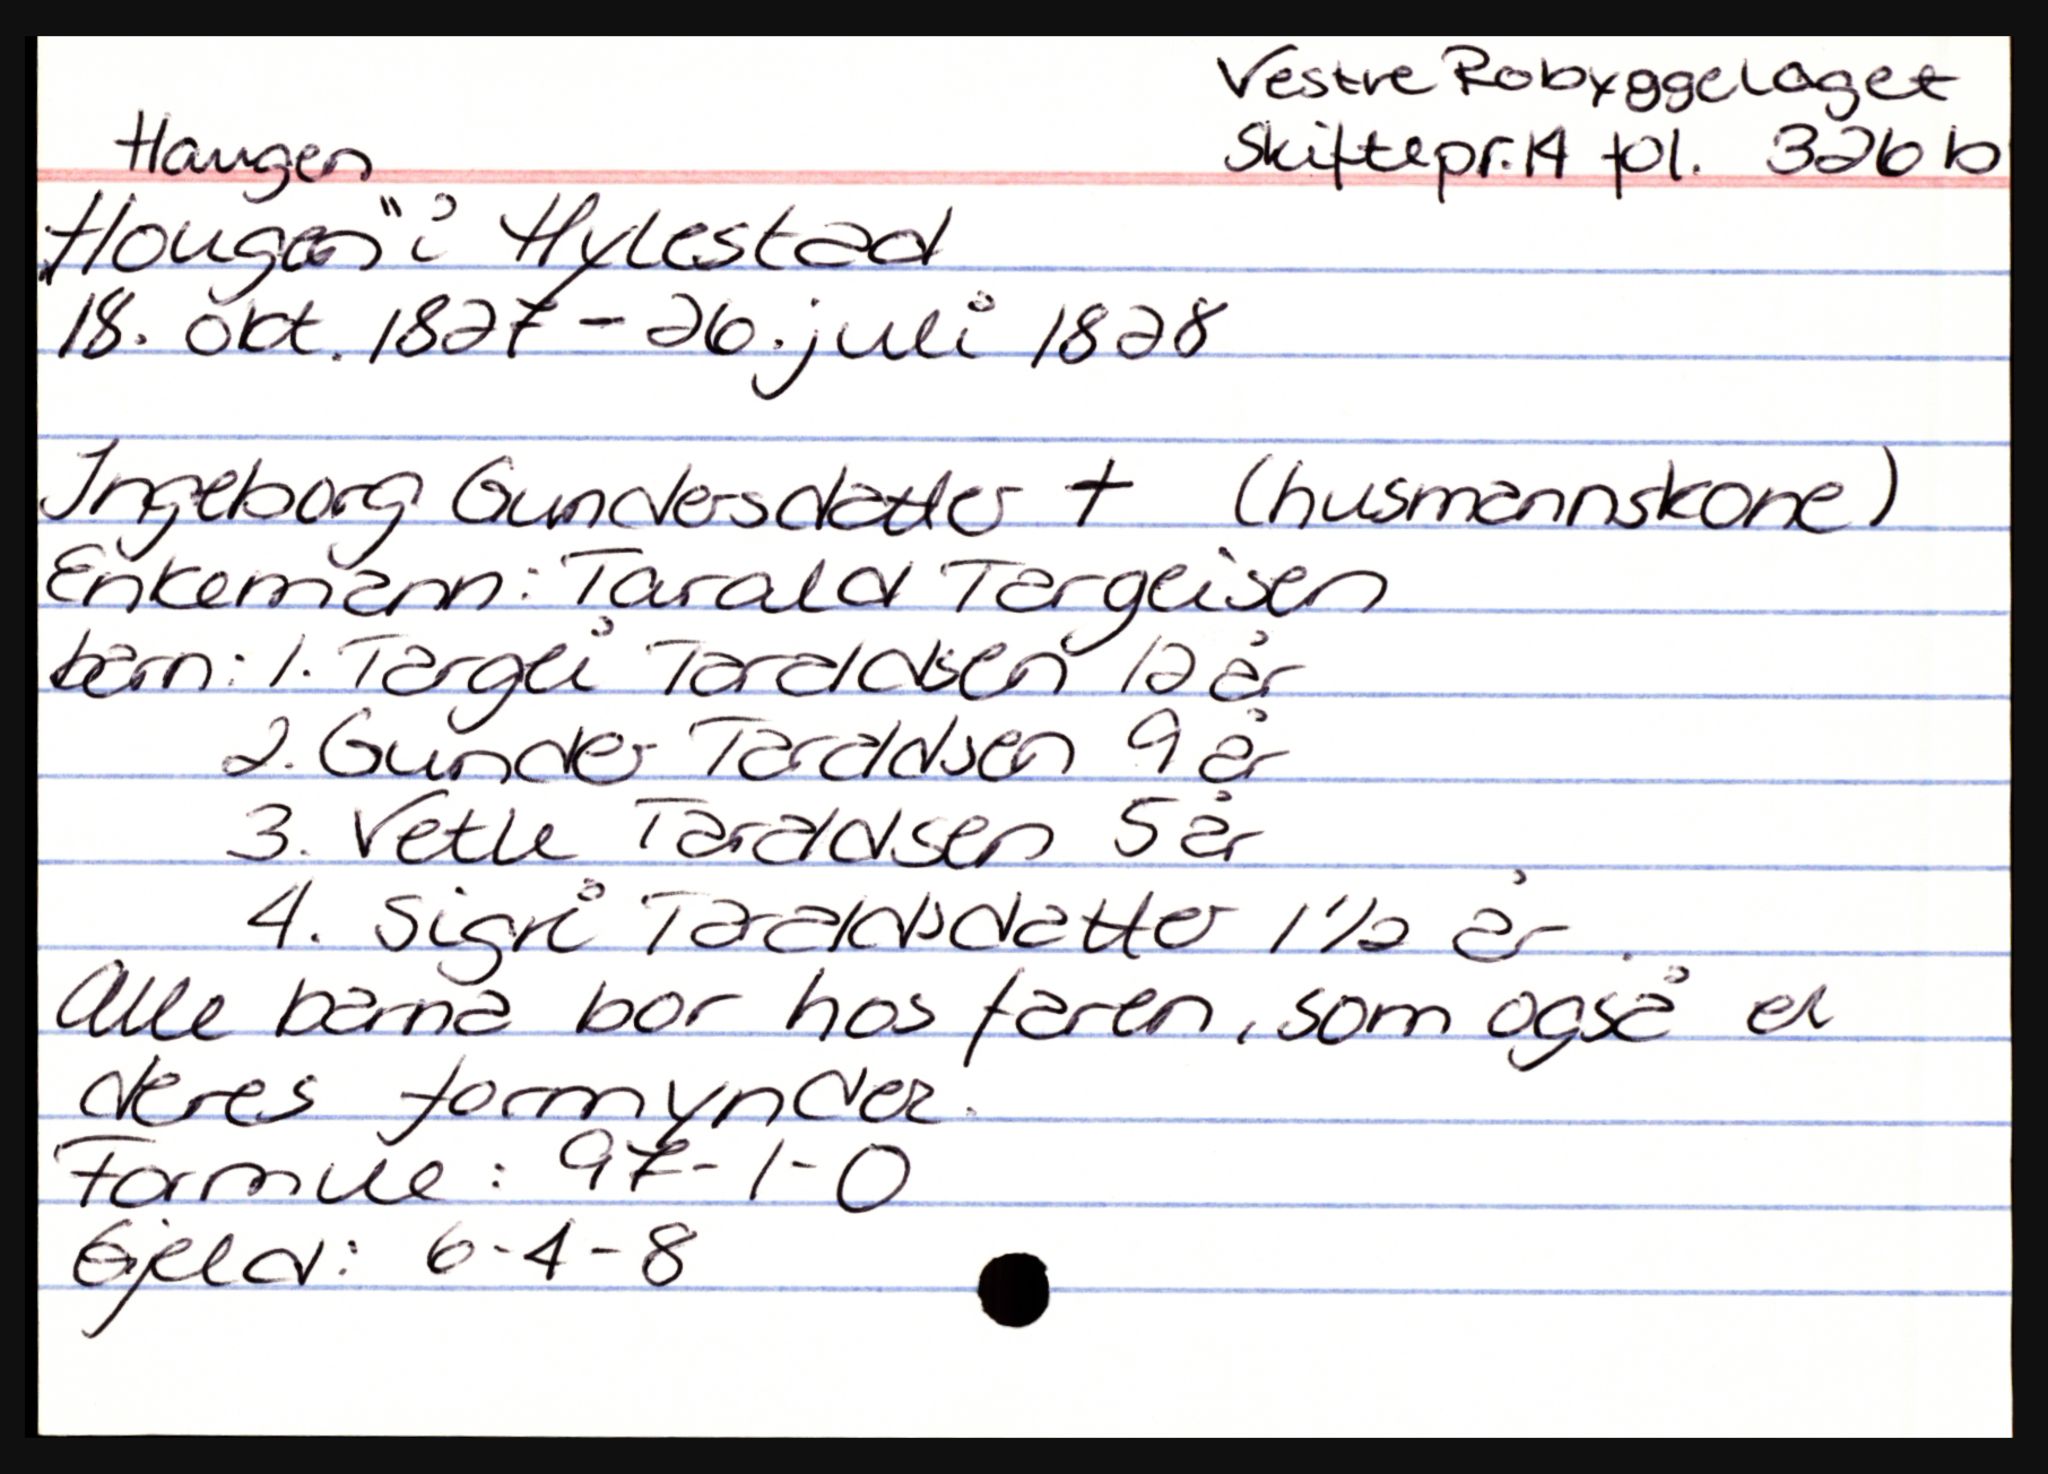 Vestre Robyggelaget
Haugen
Skiftepr. 14 fol. 326 b
"Hougen" i Hylestad
18. okt. 1827 - 26. juli 1828
Ingeborg Gundersdatter + (husmannskone)
Enkemann: Tarald Targeisen
barn: 1. Targei Taraldsen 12 år
2. Gunder Taraldsen 9 år
3. Vetle Taraldsen 5 år
4. Sigri Taraldsdatter 1 1/2 år.
Alle barna bor hos faren, som også er
deres formynder.
Formue: 97-1-0
Gjeld: 6-4-8